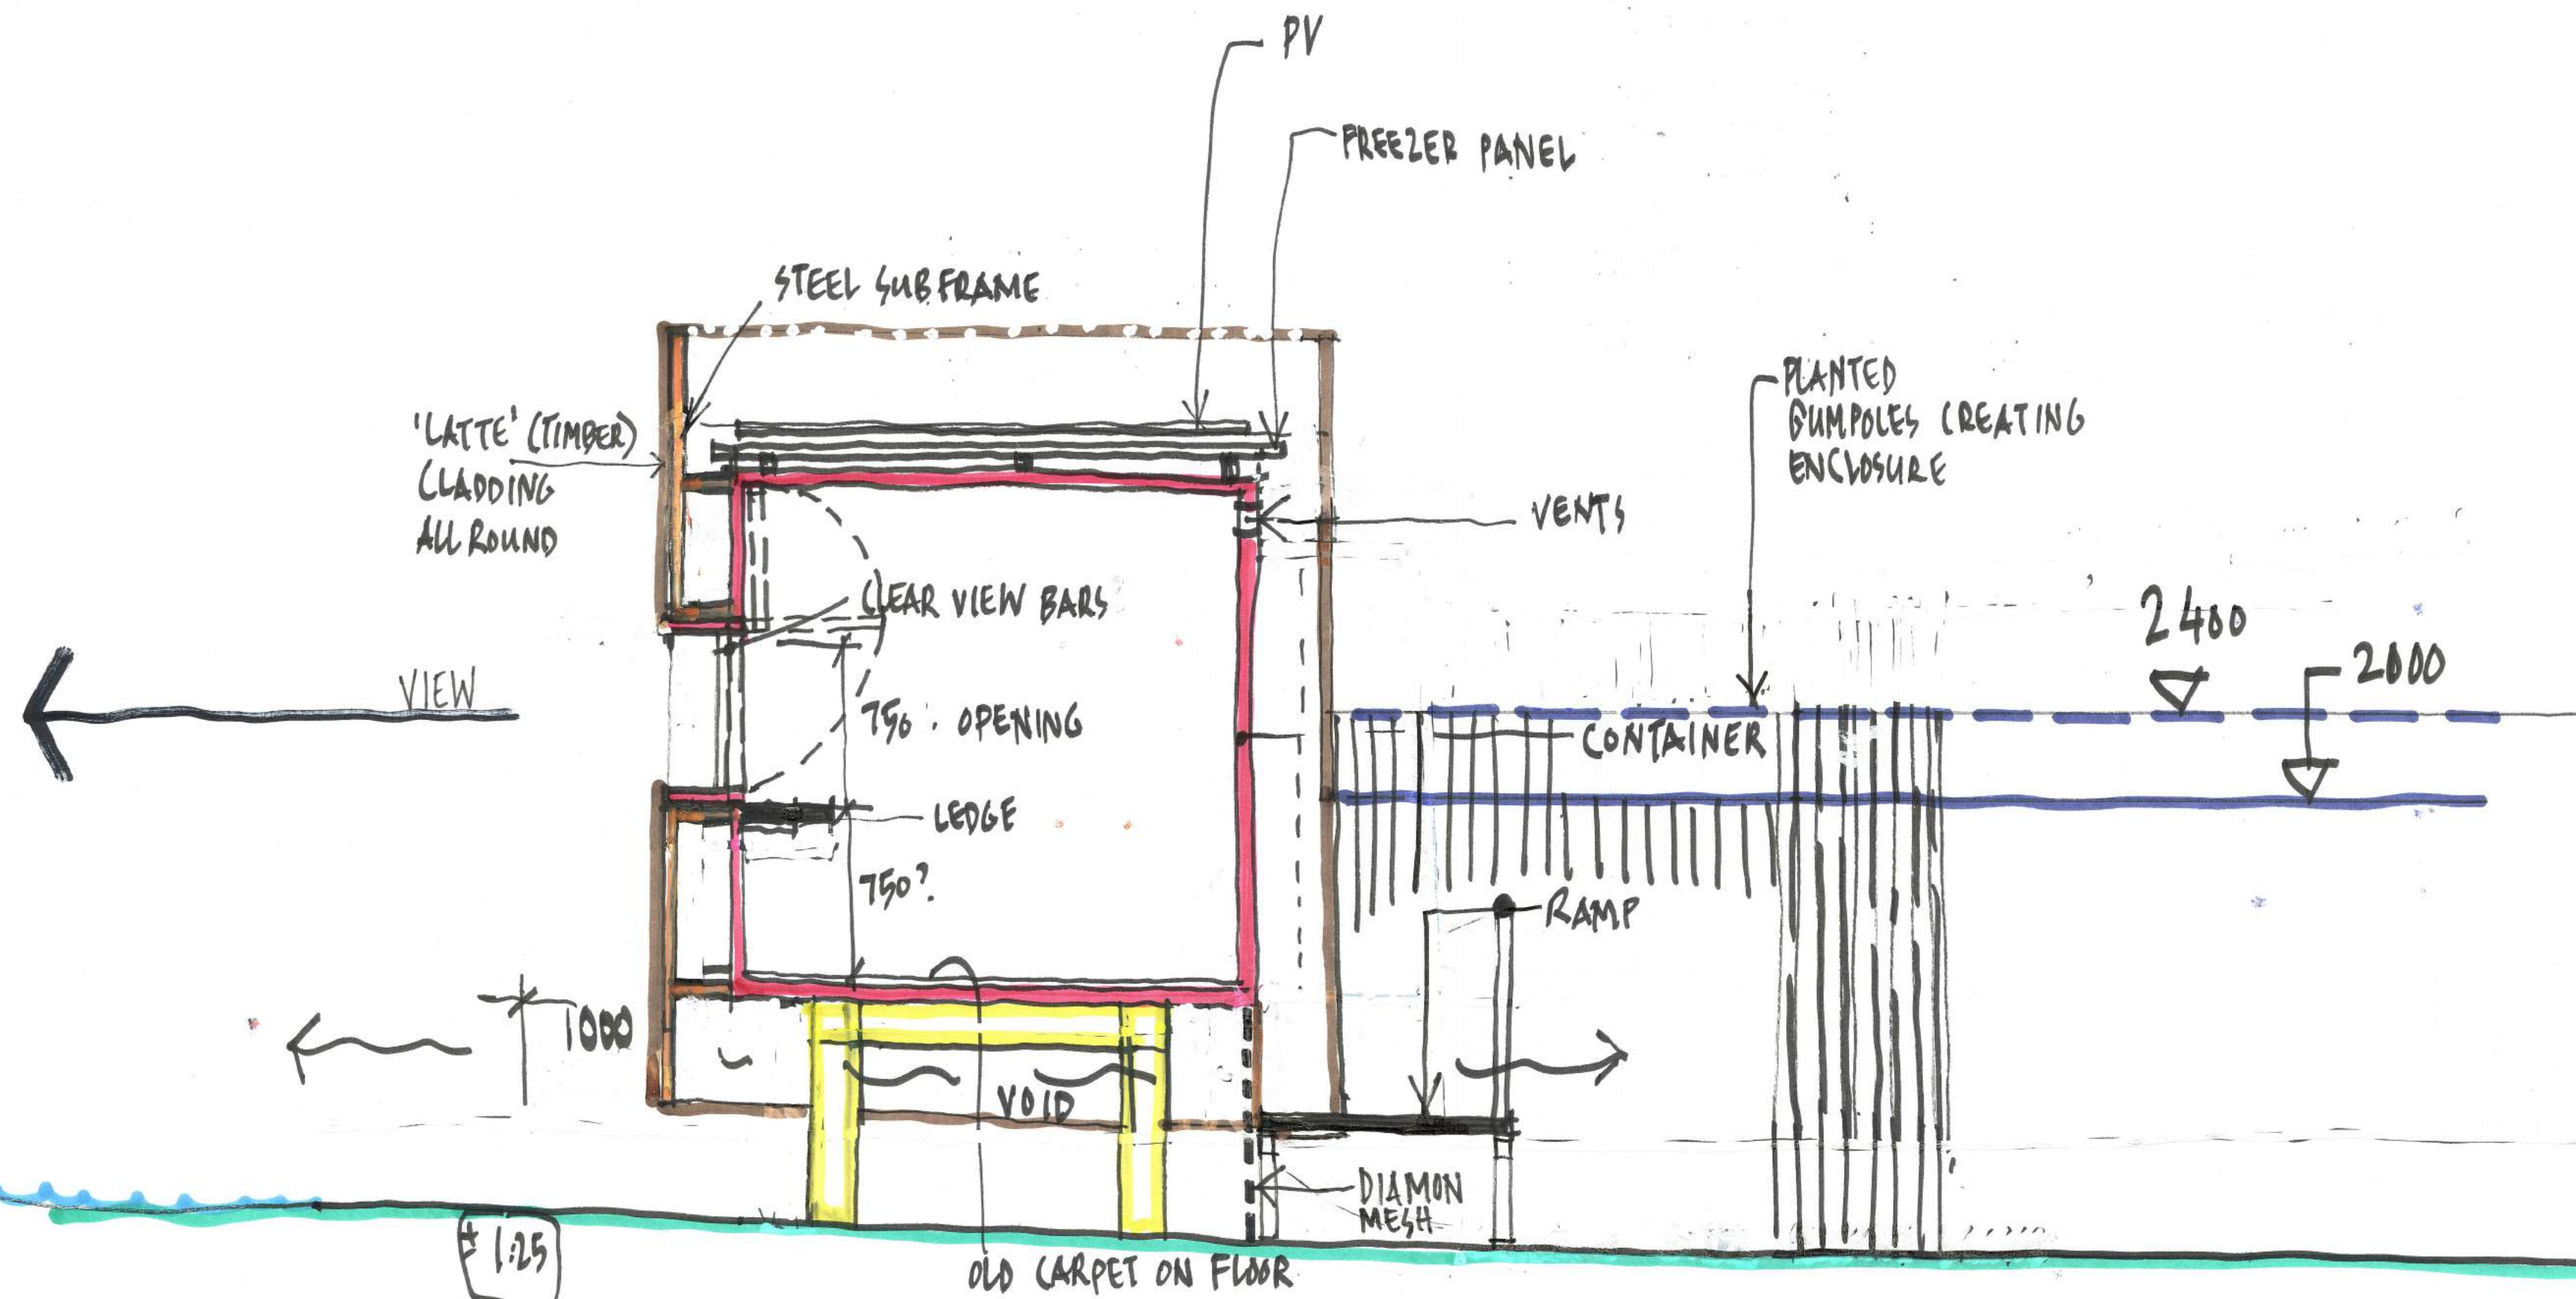 PV
FREEZER PANEL
STEEL SUBFRAME
'LATTE' (TIMBER)
CLADDING
ALL ROUND
PLANTED
GUMPOLES CREATING
ENCLOSURE
VENTS
CLEAR VIEW BARS
2400
2000
VIEW
750. OPENING
CONTAINER
LEDGE
750?
RAMP
1000
VOID
DIAMON
MESH
± 1:25
OLD CARPET ON FLOOR